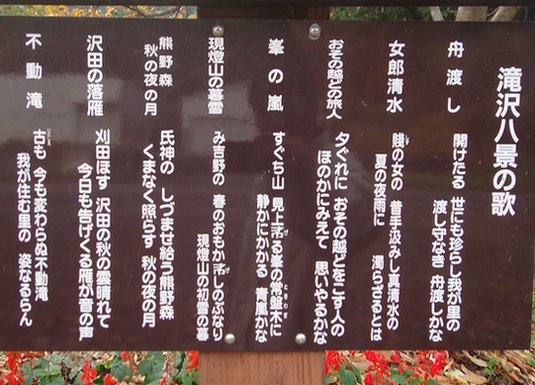 滝沢八景の歌
舟渡し
開けたる 世にも珍らし我が里の
渡し守なき 舟渡しかな
女郎清水
賤の女の 昔手汲みし真清水の
夏の夜雨に 濁らざるとは
おその越どの旅人
夕ぐれに おその越どをこす人の
ほのかにみえて 思いやるかな
峯の嵐
すぐち山 見上げる峯の常盤木に
静かにかかる 青嵐かな
現燈山の暮雪
み吉野の 春のおもかげしのぶなり
現燈山の初雪の暮
熊野森
秋の夜の月
氏神の しづませ給う熊野森
くまなく照らす 秋の夜の月
沢田の落雁
刈田ほす 沢田の秋の雲晴れて
今日も告げくる雁が音の声
不動滝
古も 今も変わらぬ不動滝
我が住む里の 姿なるらん